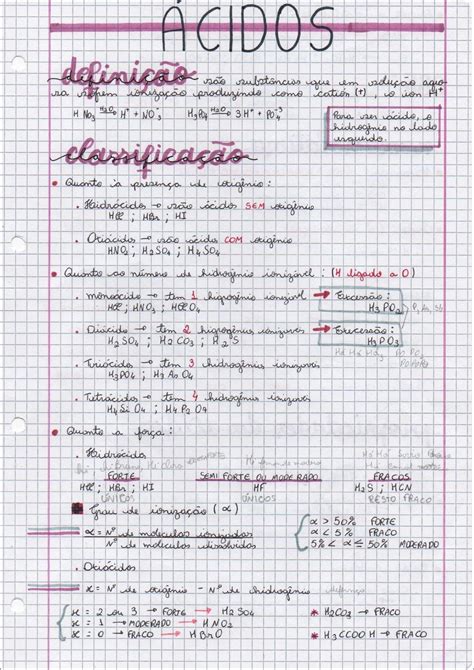 ÁCIDOS
definição → são substâncias que em solução aquo
sa sofrem ionização produzindo como cátion (+), o íon H+
H NO3 H2O→ H+ + NO3-   H3PO4 H2O→ 3H+ + PO4-3
Para ser ácido, o
hidrogênio no lado
esquerdo.
classificação
• Quanto à presença de oxigênio:
. Hidrácidos → são ácidos SEM oxigênio
HCl ; HBr ; HI
. Oxiácidos → são ácido COM oxigênio
HNO2 ; H2SO4 ; H4SiO4
• Quanto ao número de hidrogênio ionizável : (H ligado a O)
. monoácido → tem 1 higrogênio ionizável → Excessão:
HCl ; HNO3 ; HClO4   H3PO2
. Diácido → tem 2 higrogênios ionizáveis → Excessão:
H2SO4 ; H2CO3 ; H2S   H3PO3
. Triácidos → tem 3 hidrogênios ionizáveis
H3PO4 ; H3AsO4
. Tetrácidos → tem 4 hidrogênios ionizáveis
H4SiO4 ; H4P2O7
• Quanto a força :
. Hidrácidos
FORTE   SEMI FORTE OU MODERADO   FRACOS
HCl ; HBr ; HI   HF   H2S ; HCN
ÚNICOS   ÚNICOS   RESTO FRACO
Grau de ionização (α)
α = Nº de moléculas ionizadas
Nº de moléculas dissolvidas
α > 50% FORTE
α < 5% FRACO
5% < α ≤ 50% MODERADO
. Oxiácidos
x = Nº de oxigênio - Nº de hidrogênio
x = 2 ou 3 → FORTE → H2SO4   * H2CO3 → FRACO
x = 1 → MODERADO → HNO2
x = 0 → FRACO → HBrO   * H3CCOOH → FRACO